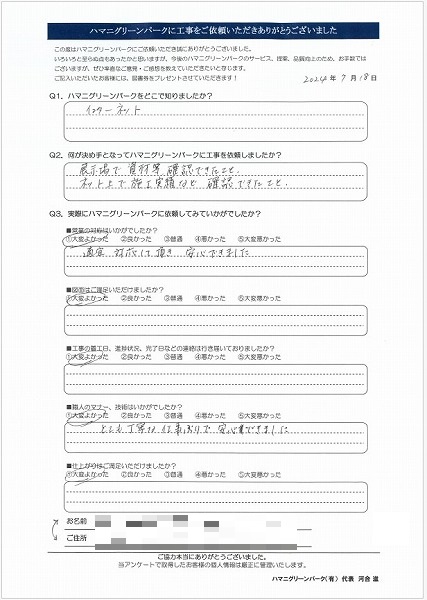 ハマニグリーンパークに工事をご依頼いただきありがとうございました
この度はハマニグリーンパークにご依頼いただき誠にありがとうございました。
いろいろと至らぬ点もあったかと思いますが、今後のハマニグリーンパークのサービス、提案、品質向上のため、お手数では
ございますが、ぜひ率直なご意見・ご感想を教えていただきたいと存じます。
ご記入いただいたお客様には、図書券をプレゼントさせていただきます!
2024年7月18日
Q1. ハマニグリーンパークをどこで知りましたか?
インターネット
Q2. 何が決め手となってハマニグリーンパークに工事を依頼しましたか?
展示場で資材等確認できたこと.
ネット上で施工実績など確認できたこと.
Q3. 実際にハマニグリーンパークに依頼してみていかがでしたか?
■営業の対応はいかがでしたか?
①大変よかった ②良かった ③普通 ④悪かった ⑤大変悪かった
適宜 対応して頂き 安心できました
■図面はご満足いただけましたか?
①大変よかった ②良かった ③普通 ④悪かった ⑤大変悪かった
■工事の着工日、進捗状況、完了日などの連絡は行き届いておりましたか?
①大変よかった ②良かった ③普通 ④悪かった ⑤大変悪かった
■職人のマナー、技術はいかがでしたか?
①大変よかった ②良かった ③普通 ④悪かった ⑤大変悪かった
とても丁寧な仕事ぶりで安心できました
■仕上がりはご満足いただけましたか?
①大変よかった ②良かった ③普通 ④悪かった ⑤大変悪かった
お名前
ご住所
ご協力本当にありがとうございました。
当アンケートで取得したお客様の個人情報は厳正に管理いたします。
ハマニグリーンパーク(有) 代表 河合